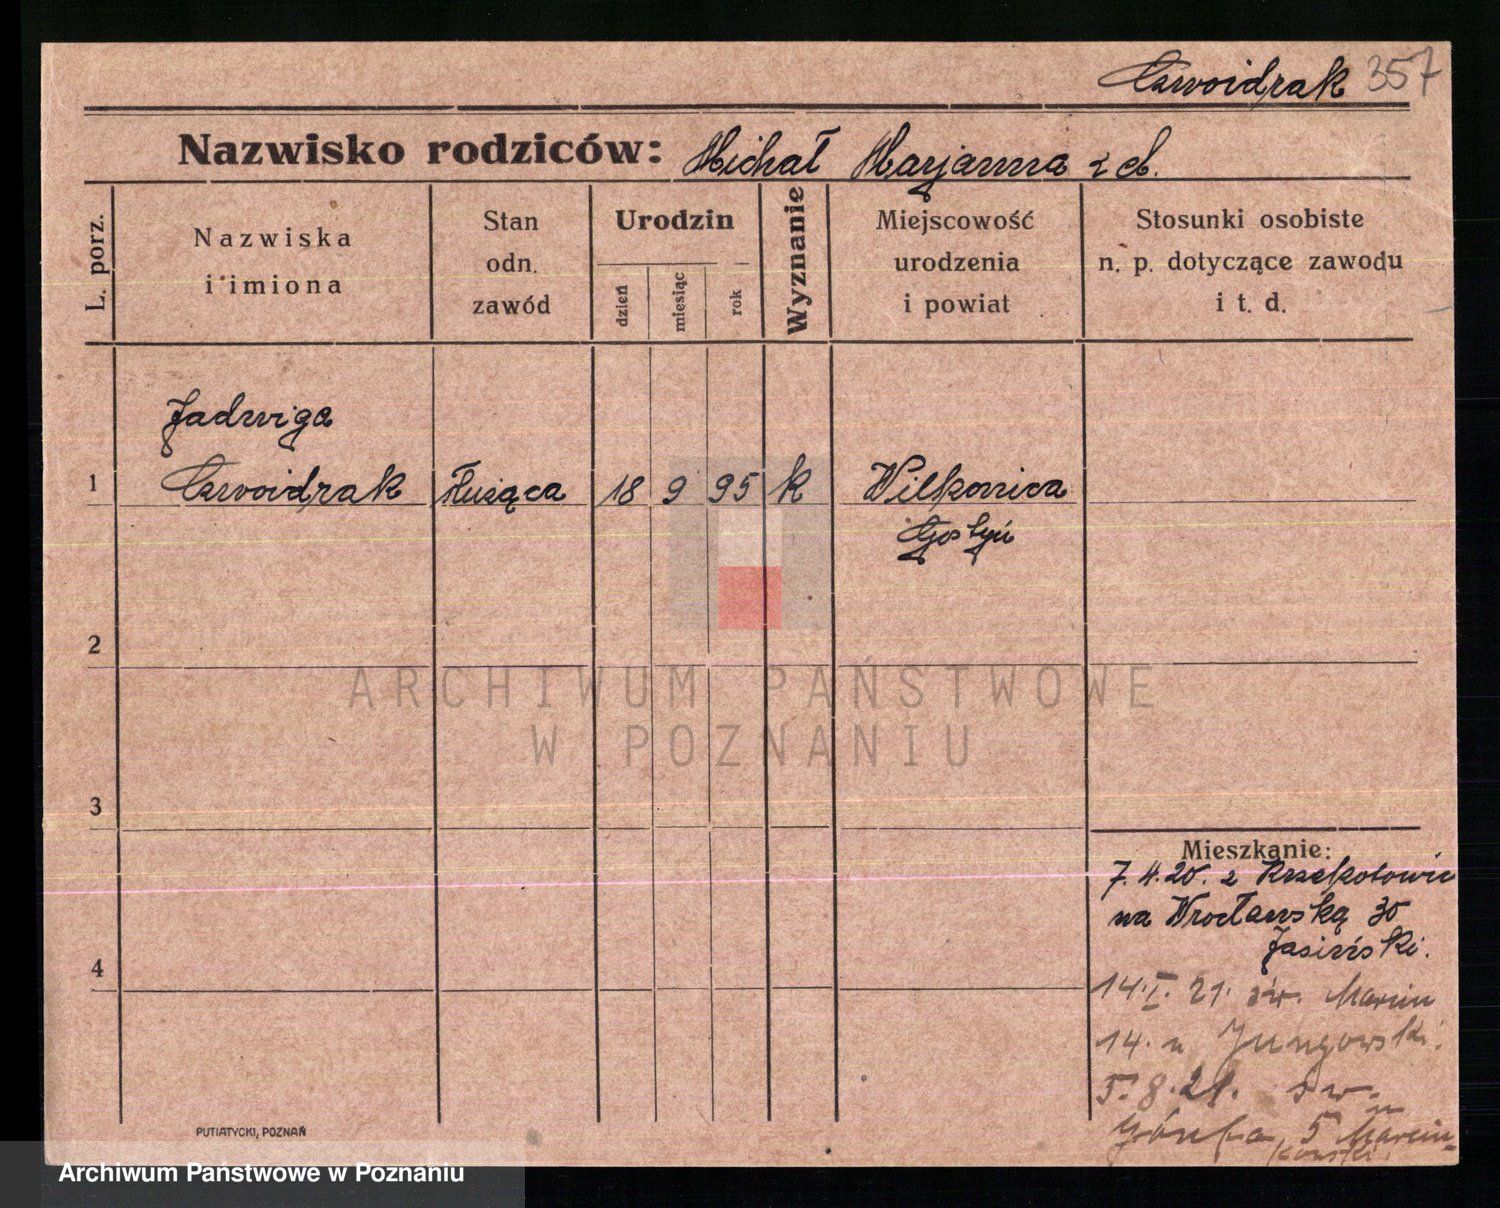 Czwoidrak 357
Nazwisko rodziców: Michał Marjanna z d.
L. porz.
Nazwiska
i imiona
Stan
odn.
zawód
Urodzin
dzień
miesiąc
rok
Wyznanie
Miejscowość
urodzenia
i powiat
Stosunki osobiste
n. p. dotyczące zawodu
i t. d.
Jadwiga
1 Czwoidrak służąca 18 9 95 k Wilkonica
Gostyń
2
ARCHIWUM PAŃSTWOWE
W POZNANIU
3
Mieszkanie:
7.4.20. z Krzekotowic
na Wrocławską 30
Jasiński.
4
14.I.21. św. Marcin
14. u Jungowski.
5.8.21. św.
Józefa 5 u Marcin-
kowski.
PUTIATYCKI, POZNAŃ
Archiwum Państwowe w Poznaniu